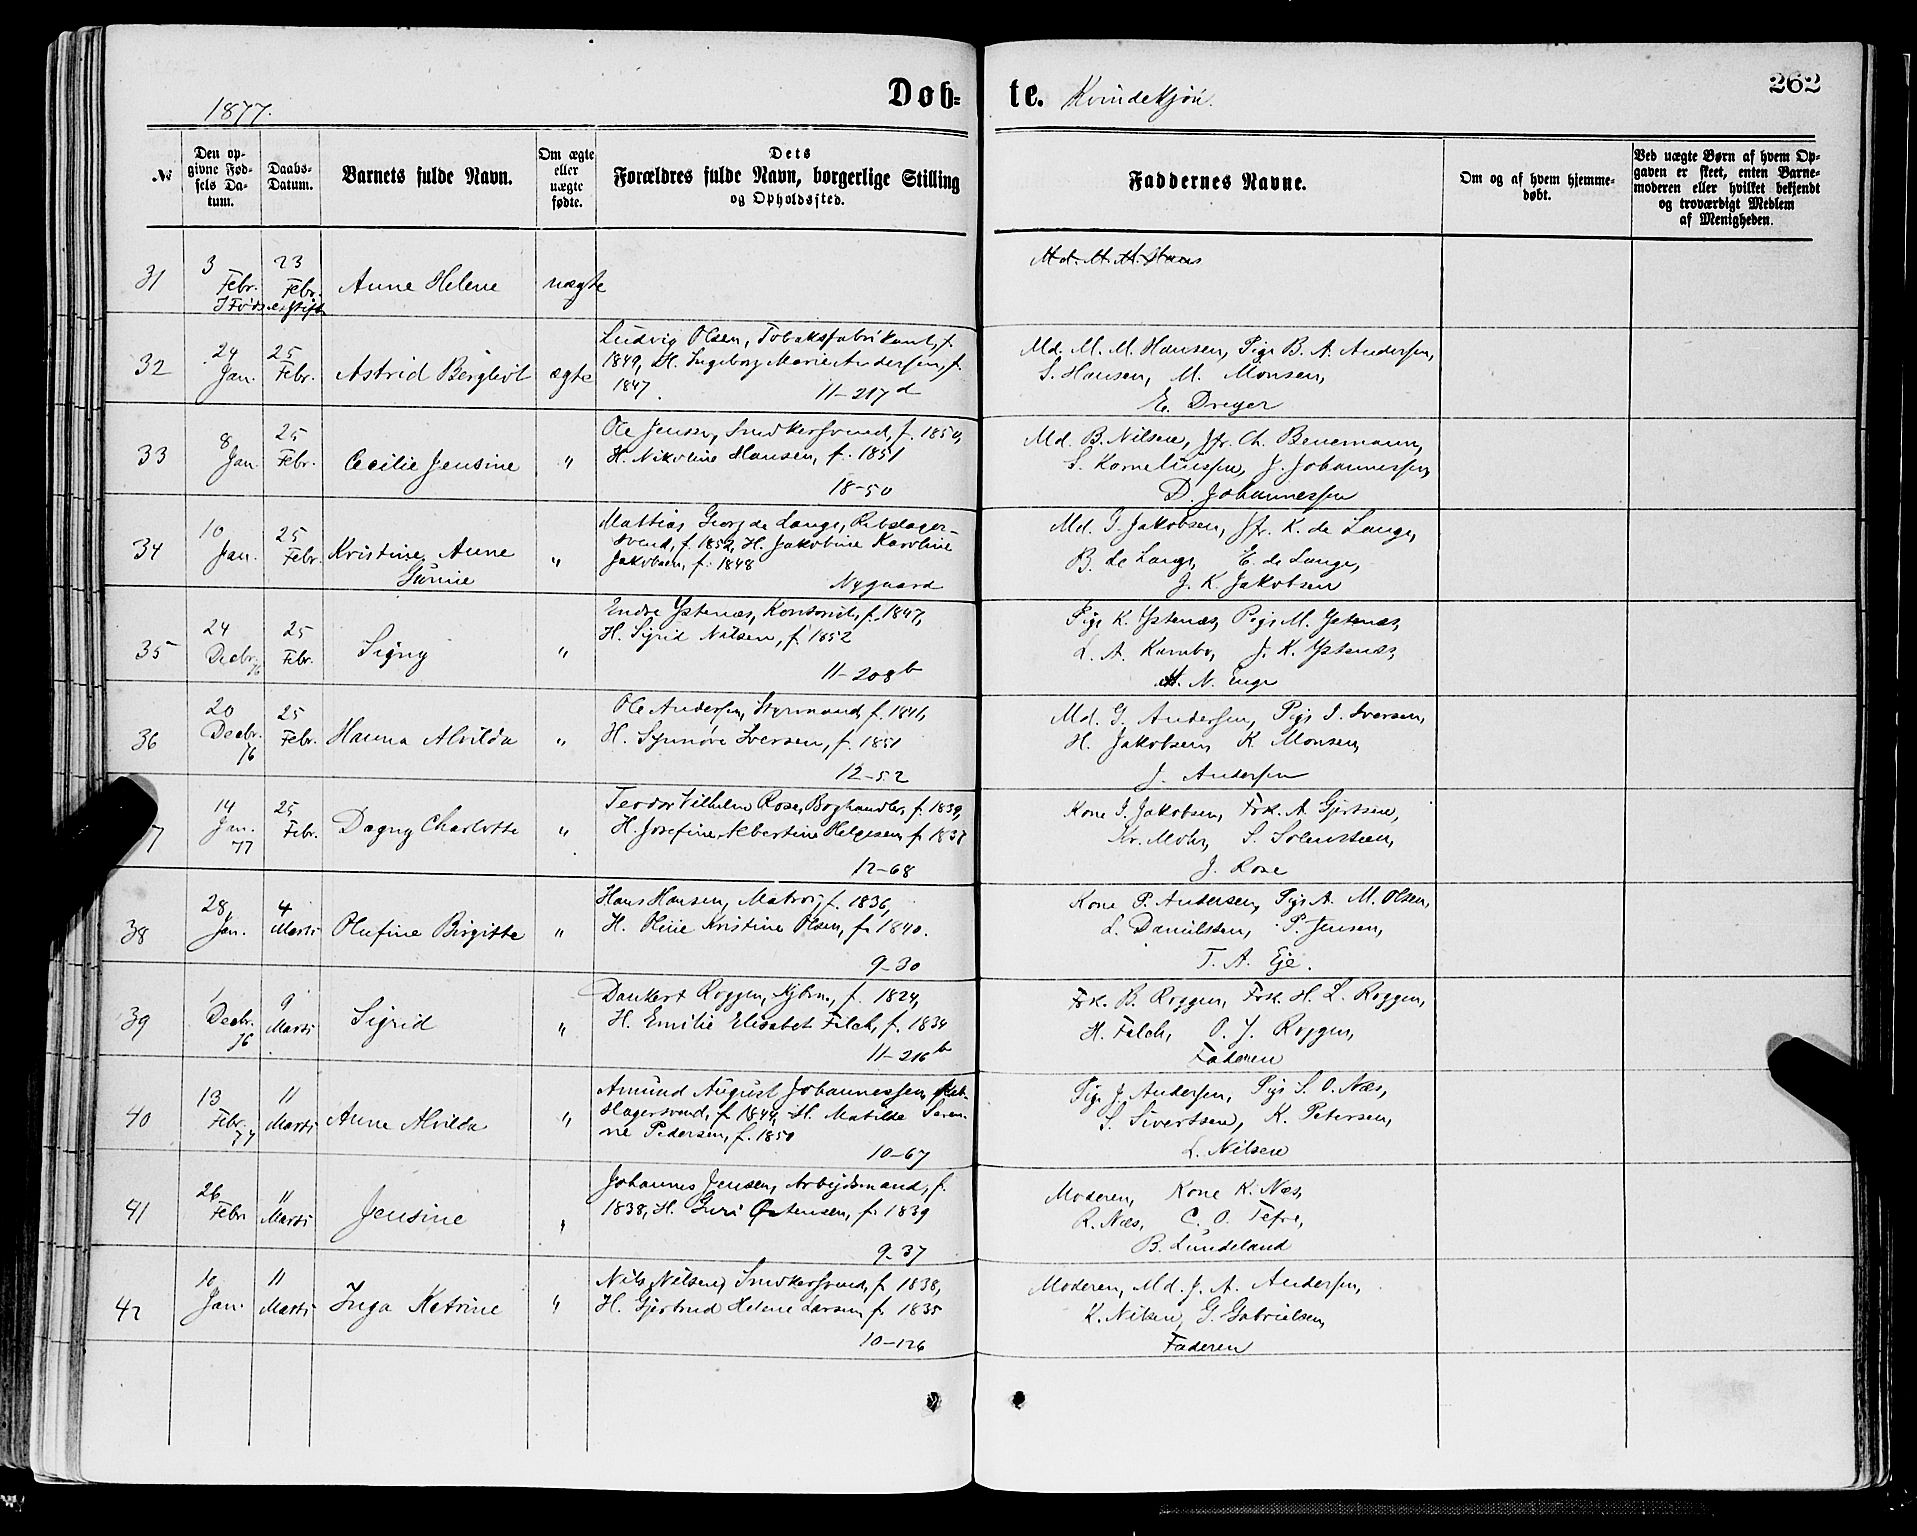 1877.
Døb-
te. Kvindekjøn.
262
№
Den op-
givne Fød-
sels Da-
tum.
Daabs-
Datum.
Barnets fulde Navn.
Om ægte
eller
uægte
fødte.
Dets
Forældres fulde Navn, borgerlige Stilling
og Opholdssted.
Faddernes Navne.
Om og af hvem hjemme-
døbt.
Ved uægte Børn af hvem Op-
gaven er skeet, enten Barne-
moderen eller hvilket bekjendt
og troværdigt Medlem
af Menigheden.
31
3
Febr.
23
Febr.
Anne Helene
uægte
Md. M. M. Hans
32
24
Jan.
25
Febr.
Astrid Bergliot
ægte
Ludvig Olsen, Tobaksfabrikant, f.
1849, H. Ingeborg Marie Andersen, f.
1847.
11-217 d
Md. M. M. Hansen, Pige B. A. Andersen,
S. Hansen, M. Monsen,
E. Dreyer
33
8
Jan.
25
Febr.
Cecilie Jensine
"
Ole Jensen, Snedkersvend, f. 1850,
H. Nikoline Hansen, f. 1851
18-50
Md. B. Nilsen, Jfr. Ch. Benemann,
S. Korneliussen, J. Johannessen,
D. Johannessen
34
10
Jan.
25
Febr.
Kristine Anne
"
Mattias Georg de Lange, Rebslager-
svend, f. 1852, H. Jakobine Karoline
Jakobsen, f. 1848
Nygaard
Md. G. Jakobsen, Jfr. K. de Lange,
B. de Lange, E. de Lange,
J. K. Jakobsen
35
24
Decbr. 76
25
Febr.
Signy
"
Endre Ystenæs, Konstruct., f. 1847,
H. Sigrid Nilsen, f. 1852
11-208 b
Pige K. Ystenæs, Pige M. Ystenæs,
L. A. J. K. Ystenæs,
36
20
Decbr.
76
25
Febr.
Hanna Alvilda
"
Ole Andersen, Styrmand, f. 1846,
H. Synnøve Iversen, f. 1851
12-52
Md. G. Andersen, Pige I. Iversen,
H. Jakobsen, K. Monsen,
J. Andersen
7
14
Jan.
77
25
Febr.
Dagny Charlotte
"
Teodor Vilhelm Rose, Boghandler, f. 1839,
H. Josefine Albertine Helgesen, f. 1837
12-68
Kone I. Jakobsen, Frk. A. Gjertsen,
Kr. Mohr, S.
J. Rose
38
28
Jan.
4
Marts
Olufine Birgitte
"
Hans Hansen, Matros, f. 1836,
H. Oline Kristine Olsen, f. 1840.
9-30
Kone P. Andersen, Pige A. M. Olsen,
L. Danielsen, P. Jensen,
T. A. Eje.
39
1
Decbr.
76
9
Marts
Sigrid
"
Dankert Roggen, Kjbm., f. 1824,
H. Emilie Elisabet Filch, f. 1834
11-216 b
Frk. B. Roggen, Frk. H. L. Roggen,
H. Falch, O. J. Roggen,
Faderen
40
13
Febr.
77
11
Marts
Anne Alvilda
"
Amund August Johannessen, Reb-
slagersvend, f. 1844, H. Matilde Seve-
rine Pedersen, f. 1850
10-67
Pige J. Andersen, Pige S. O. Næs,
S. Sivertsen, K. Petersen,
L. Nilsen
41
26
Febr.
11
Marts
Jensine
"
Johannes Jensen, Arbejdsmand, f.
1838, H. Guri Østensen, f. 1839
9-37
Moderen, Kone K. Næs,
R. Næs, C. O. Tefre,
B. Lundeland
42
10
Jan.
11
Marts
Inga Katrine
"
Nils Nilsen, Snedkersvend, f. 1838,
H. Gjertrud Helene Larsen, f. 1835
10-126
Moderen, Md. J. A. Andersen,
K. Nilsen, G. Gabrielsen,
Faderen